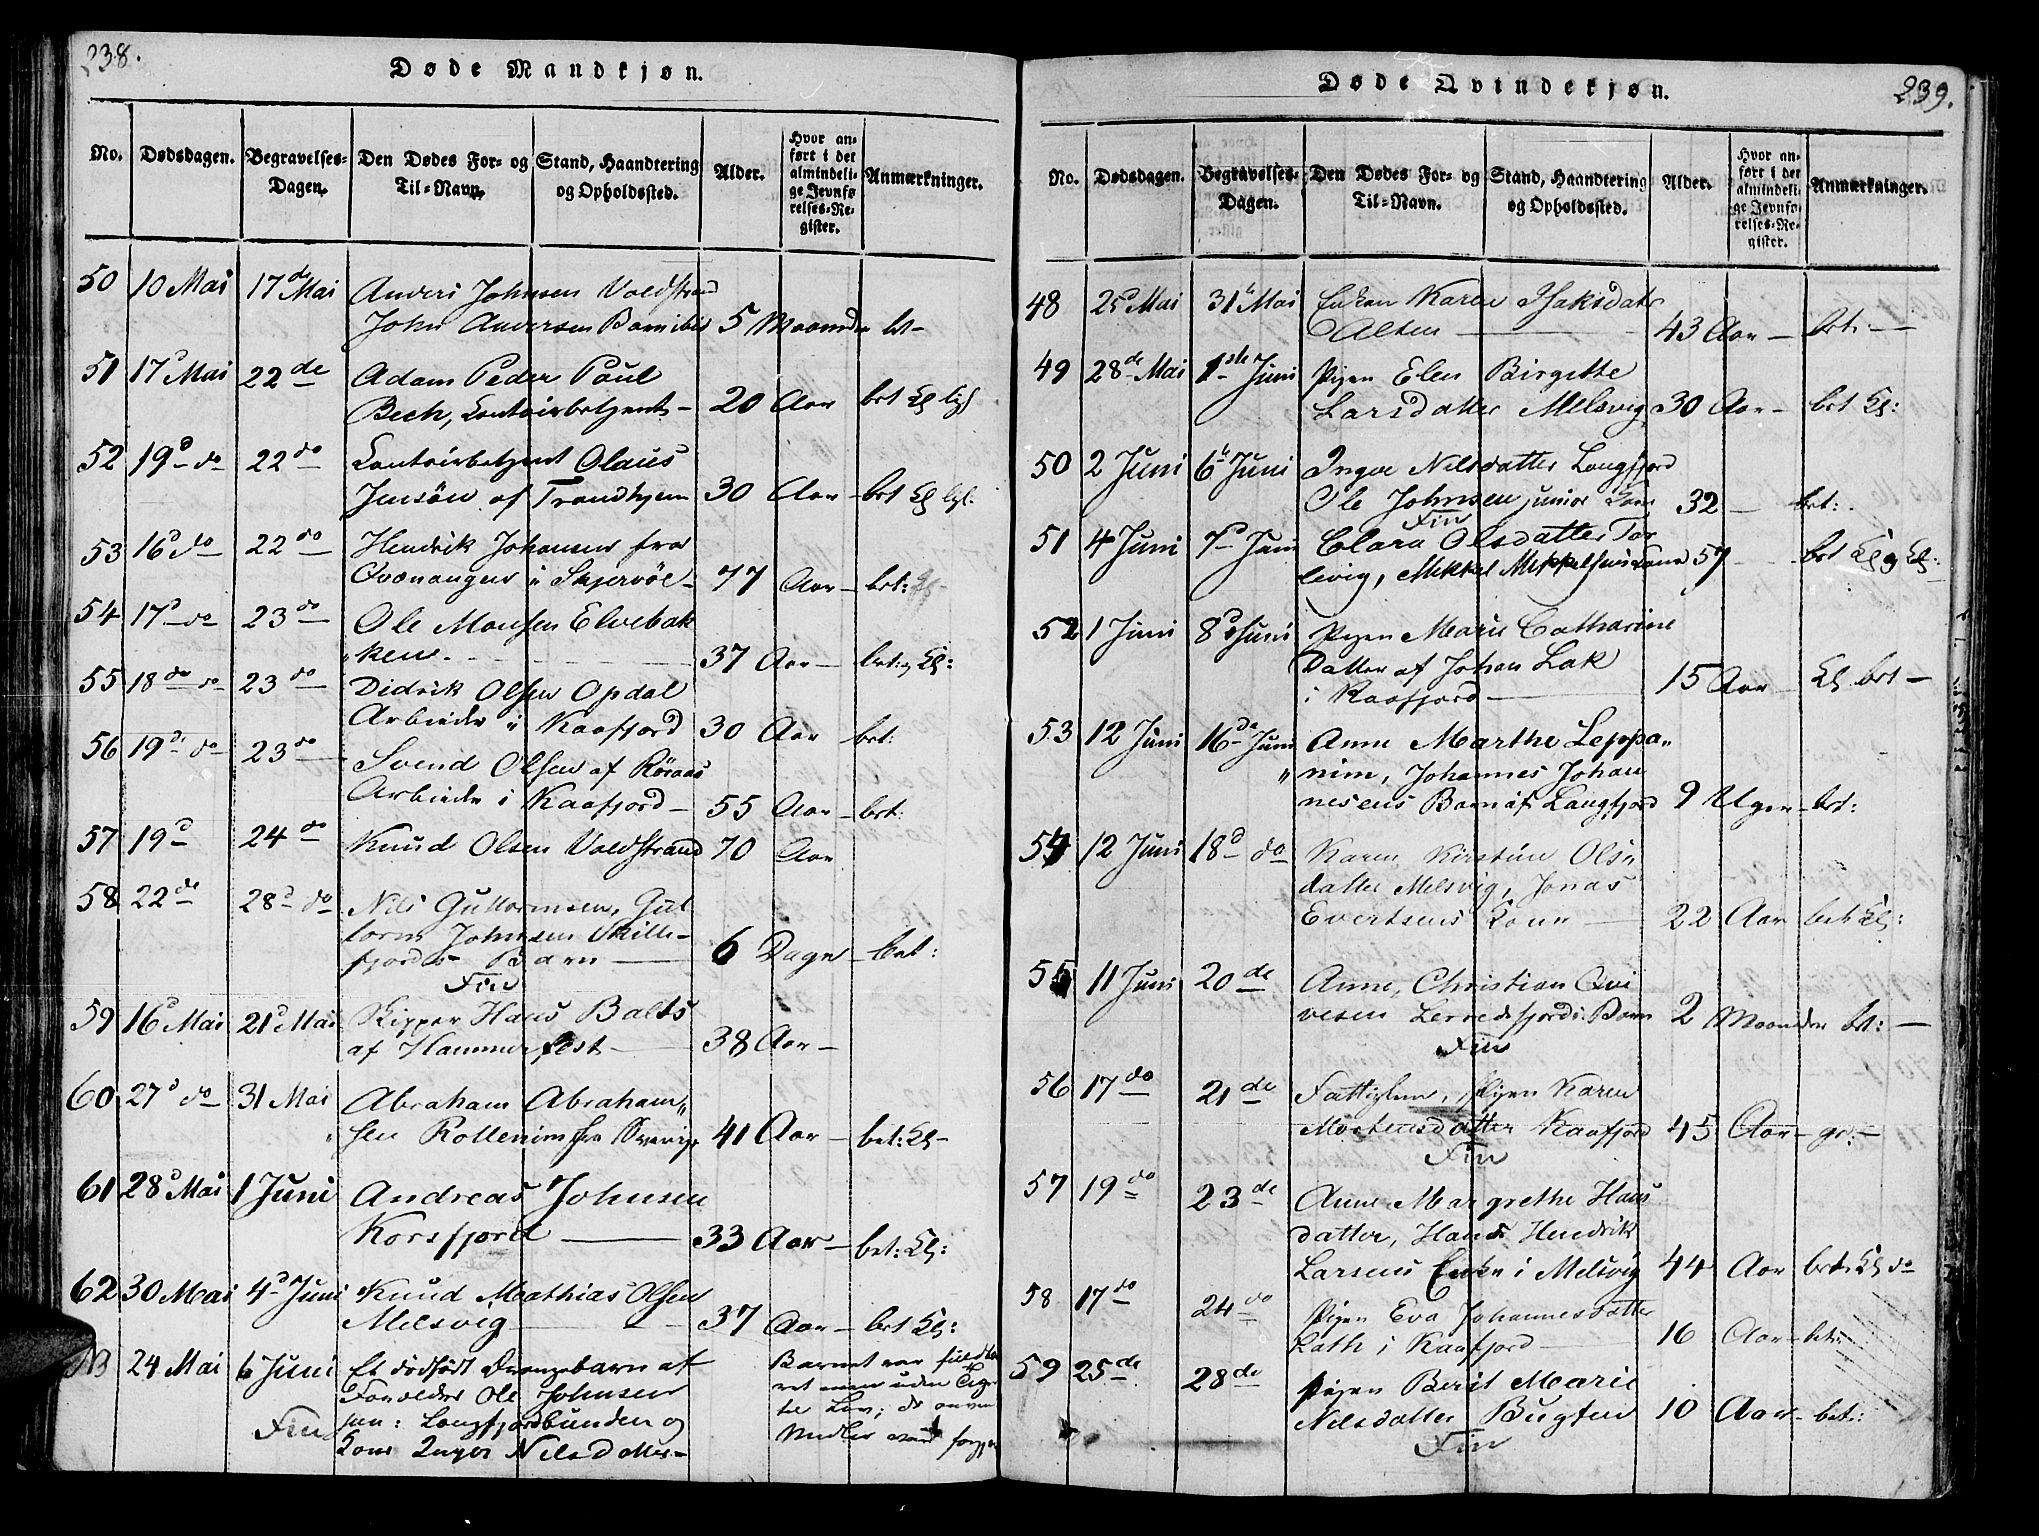 238.
Døde Mandkjøn.
No. Dødsdagen. Begravelses-Dagen. Den Dødes For- og Til-Navn. Stand, Haandtering og Opholdssted. Alder. Hvor anført i det almindelige Jevnførelses-Register. Anmærkninger.
50 10 Mai 17de Mai Anders Johnsen Voldstrand
John Andersen Barn 5 Maaneder bet-
51 17d Mai 22de Adam Peder Poul
Bech, Contoirbetjent- 20 Aar bet Kl
52 19d do 22do Contoirbetjent Olaus
Jensön af Trondhjem 30 Aar - bet Kl
53 16d do 22do Hendrik Johansen fra
Qvænangen i Skjervöe- 77 Aar - bet:
54 17d do 23do Ole Monsen Elvebak
ken. 37 Aar - bet: Kl:
55 18de do 23do Didrik Olsen Opdal
Arbieder i Kaafjord 30 Aar bet:
56 19de do 23do Svend Olsen af Röraas
Arbieder i Kaafjord - 55 Aar - bet:
57 19d 24do Knud Olsen Voldstrand 70 Aar
58 22de 28d do Nils Guttormsen, Gut
torm Johnsen Skille-
fjords - Barn 6 Dage - bet:
Fin
59 16d Mai 21d Mai Skipper Hans Balts
af Hammerfest 38 Aar -
60 27d do 31 Mai Abraham Abraham„
sen Rollenim fra Sverig 41 Aar - bet: Kl-
61 28d Mai 1 Juni Andreas Johnsen
Korsfjord 33 Aar - bet: Kl:
62 30 Mai 4d Juni Knud Mathias Olsen
Melsvig 37 Aar - bet Kl:
NB 24 Mai 6 Juni Et dödfödt Drengebarn af Barnet var fuldbaa
Forældre Ole Johnsen ret men uden Tegn
jun: Langfjordbunden og til Liv; de anven
Fin Kone Inger Nilsdatter - Midler vare forgjæ
239.
Døde Qvindekjøn.
No. Dødsdagen. Begravelses-Dagen. Den Dødes For- og Til-Navn. Stand, Haandtering og Opholdssted. Alder. Hvor anført i det almindelige Jevnførelses-Register. Anmærkninger.
48 25d Mai 31d Mai Enken Karen Isaksdatr
Alten 43 Aar - bet: -
49 28de Mai 1ste Juni Pigen Elen Birgitte
Larsdatter Melsvig 30 Aar - bet Kl:
50 2 Juni 6te Juni Inger Nilsdatter Langfjord
Ole Johnsen junior Kone 32 - bet:
Fin
51 4 Juni 7d Juni Clara Olsdatter Tor
levig, Mikkel Mikkelsens Kone 57 bet Kl g Kl:
52 1 Juni 8d Juni Pigen Marie Catharine
Datter af Johan Lak
i Kaafjord 15 Aar Kl bet -
53 12 Juni 16de Juni Anne Marthe Leppa„
„nim, Johannes Johan
nesens Barn af Langfjord 9 Uger - bet:
54 12 Juni 18d do Karen Kirstine Ols„
datter Melsvig, Jonas
Evertsens Kone 22 Aar bet Kl:
55 11 Juni 20de Anne, Christian Qvi
vesen Lerredsfjords Barn 2 Maaneder bet: -
Fin
56 17do 21de Fattiglem, Pigen Karen
Mortensdatter Kaafjord 45 Aar - gr: -
Fin
57 19do 23de Anne Margrethe Hans
datter, Hans Hendrik
Larsens Enke i Melsvig 44 Aar bet: Kl do
58 17do 24do Pigen Eva Johannesdatter
Lath i Kaafjord 16 Aar - bet:
59 25de 28de Pigen Berit Marie
Nilsdatter Bugten 10 Aar - bet:
Fin